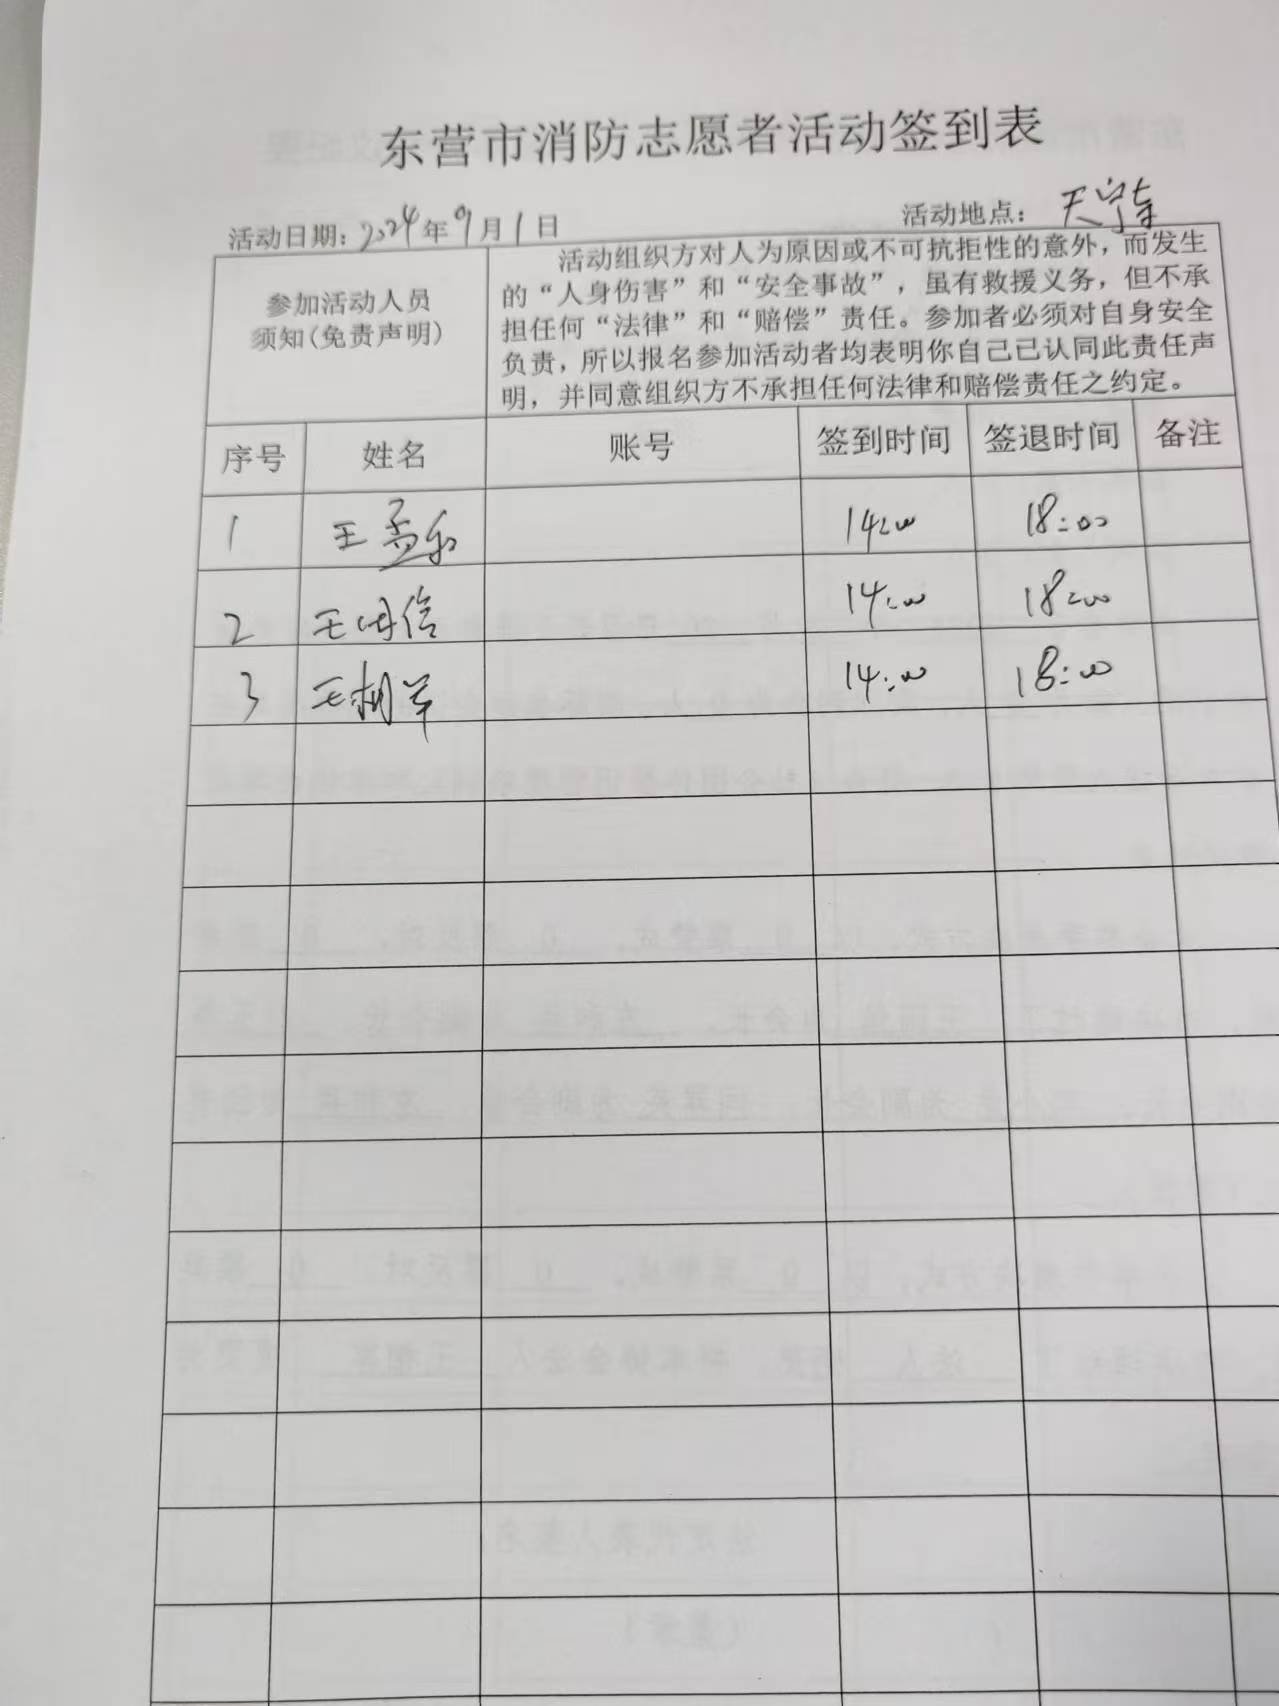 东营市消防志愿者活动签到表
活动日期：2024年9月1日
活动地点：天宁寺
参加活动人员
须知(免责声明)
活动组织方对人为原因或不可抗拒性的意外，而发生
的“人身伤害”和“安全事故”，虽有救援义务，但不承
担任何“法律”和“赔偿”责任。参加者必须对自身安全
负责，所以报名参加活动者均表明你自己已认同此责任声
明，并同意组织方不承担任何法律和赔偿责任之约定。
序号 姓名 账号 签到时间 签退时间 备注
1 王孟 14:00 18:00
2 王国信 14:00 18:00
3 王树军 14:00 18:00